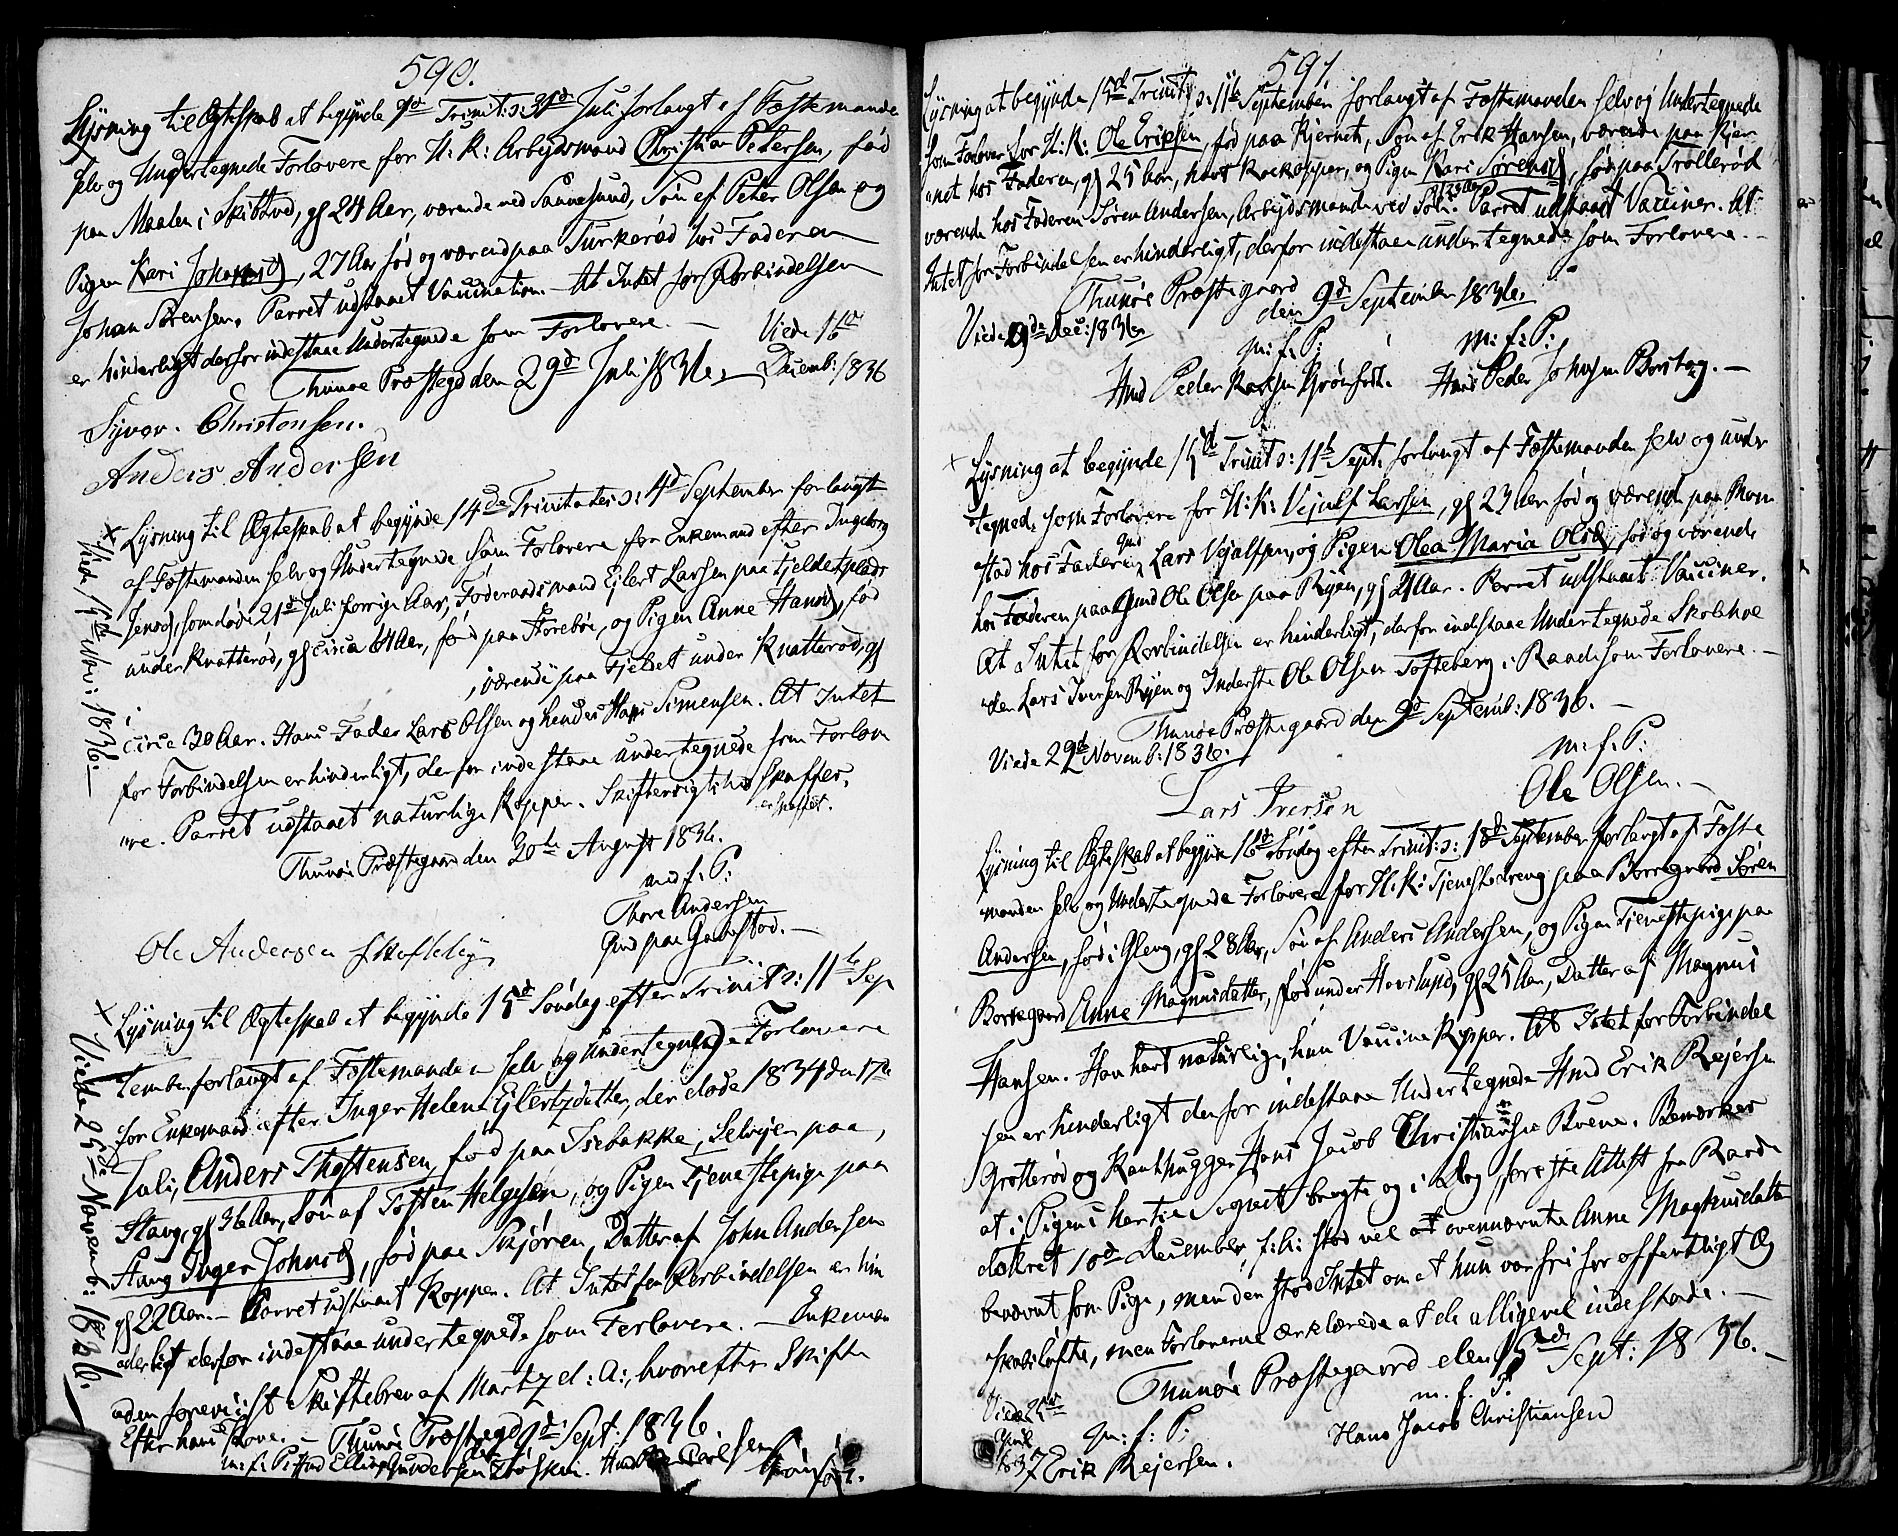 590.
Lysning til Ægteskab at begynde 9d Trinit: ɔ: 31d Juli forlangt af Fæstemanden
selv og Undertegnede Forlovere for U: K: Arbejdsmand Christian Petersen, fød
paa Maalen i Skibtved, gl 24 Aar, værende ved Sannesund, Søn af Peter Olsen og
Pigen Kari Johansd, 27 Aar fød og værend paa Turkerød hos Faderen
Johan Sørensen. Parret udstaaet Vaccination. At Intet for Forbindelsen
er hinderligt derfor indestaae Undertegnede som Forlovere. —
Thunøe Præstegd den 29d Juli 1836.
Viede 16de
Decemb: 1836
Syver Christensen.
Anders Andersen
× Lysning til Ægteskab at begynde 14de Trinitatis ɔ: 4d September forlangt
af Fæstemanden selv og Undertegnede som Forlovere for Enkemand efter Ingeborg
Jensd, som døde 21d Juli forrige Aar, Føderaadsmand Ejlert Larsen paa Fjeldetplads
under Knatterød, gl circa 64 Aar, fød paa Storebøe, og Pigen Anne Hansd, fød
, værende paa Fjeldet under Knatterød, gl
circa 30 Aar. Hans Fader Lars Olsen og hendes Hans Simensen. At Intet
for Forbindelsen er hinderligt, derfor indestaae undertegnede som Forlov
ere. Parret udstaaet naturlige Kopper. Skifterigtighed skaffes.
er skaffet.
Thunøe Præstegaard den 30te August 1836.
Viede 19d Nov: 1836.
med f: P:
Thore Andersen
Gmd paa
Ole Andersen
× Lysning til Ægteskab at begynde 15d Søndag efter Trinit: ɔ: 11te Sep
tember forlangt af Fæstemanden selv og Undertegnede Forlovere
for Enkemand efter Inger Helene Ejlertsdatter, der døde 1834 den 17de
Juli, Anders Thostensen, fød paa Isebakke, Selvejer paa
Stang, gl 36 Aar, Søn af Tosten Helgesen, og Pigen Tjenestepige paa
Stang Inger Johnsd, fød paa Skjøren, Datter af John Andersen
gl 22 Aar. — Parret udstaaet Kopper. At Intet for Forbindelsen er hin
derligt derfor indestaae undertegnede som Forlovere. — Enkeman
den foreviist Skiftebrev af Marts d: A:, hvorefter Skifte
Efter hans Kone. — Thunøe Præstegd d: Sept: 1836.
Viede 25de Novemb: 1836.
m: f: P: Gmd Elling Gundersen
591.
Lysning at begynde 15d Trinit: ɔ: 11te September forlangt af Fæstemanden selv og Undertegnede
som Forlovere for U: K: Ole Eriksen, fød paa Kjernet, Søn af Erik Hansen, værende paa Kjer
net hos Faderen, gl 25 Aar, havt Kokopper, og Pigen Kari Sørensd, fød paa Trollerød
værende hos Faderen Søren Andersen, Arbejdsmand ved Parret udstaaet Vacciner. At
Intet for Forbindelsen er hinderligt, derfor indestaae undertegnede som Forlovere. —
Thunøe Præstegaard
den 9d September 1836.
Viede 9de Dec: 1836
m: f: P:
m: f: P:
Hmd Peder
Hmd Peder Johnsen Borstag. —
× Lysning at begynde 15d Trinit ɔ: 11te Sept: forlangt af Fæstemanden selv og under
tegnede som Forlovere for U: K: Vejulf Larsen, gl 23 Aar fød og værend paa Rom
stad hos Faderen Gmd Lars Vejulfsen, og Pigen Olea Maria Olsd, fød og værende
hos Faderen paa Gmd Ole Olsen paa Ryen, gl 21 Aar. Parret udstaaet Vacciner.
At Intet for Forbindelsen er hinderligt, derfor indestaae Undertegnede Skolehol
der Lars Iversen Ryen og Inderste Ole Olsen Tofteberg i Raade som Forlovere. —
Thunøe Præstegaard den 9d Septemb: 1836. —
Viede 29de Novemb: 1836.
m: f: P:
Lars Iversen
Ole Olsen. —
Lysning til Ægteskab at begynde 16d Søndag efter Trinit: ɔ: 18d September forlangt af Fæste
manden selv og Undertegnede Forlovere for U: K: Tjenestedreng paa Borregaard Søren
Andersen, fød i Gleng, gl 28 Aar, Søn af Anders Andersen, og Pigen Tjenestepige paa
Borregaard Anne Magnusdatter, fød under Hovslund, gl 25 Aar, Datter af Magnus
Hansen. Han havt naturlige, hun Vaccine Kopper. At Intet for Forbindel
sen er hinderligt derfor indestaae Undertegnede Hmd Erik Rejersen
Grotterød og Hans Jacob Christiansen Bemærkes
at i Pigens hertil Sognet bragte og i Dag foreviste Attest fra Raade
dateret 10de December, f: A: stod vel at ovennævnte Anne Magnusdatter
benævnt som Pige, men den stod Intet om at hun var fri for offentligt Æg
teskabsløfte, men Forloverne erklærede at de alligevel indestode. —
Thunøe Præstegaard den 15de Sept: 1836. —
Viede
April
1837
m. f. P:
m: f: P:
Erik Rejersen.
Hans Jacob Christiansen